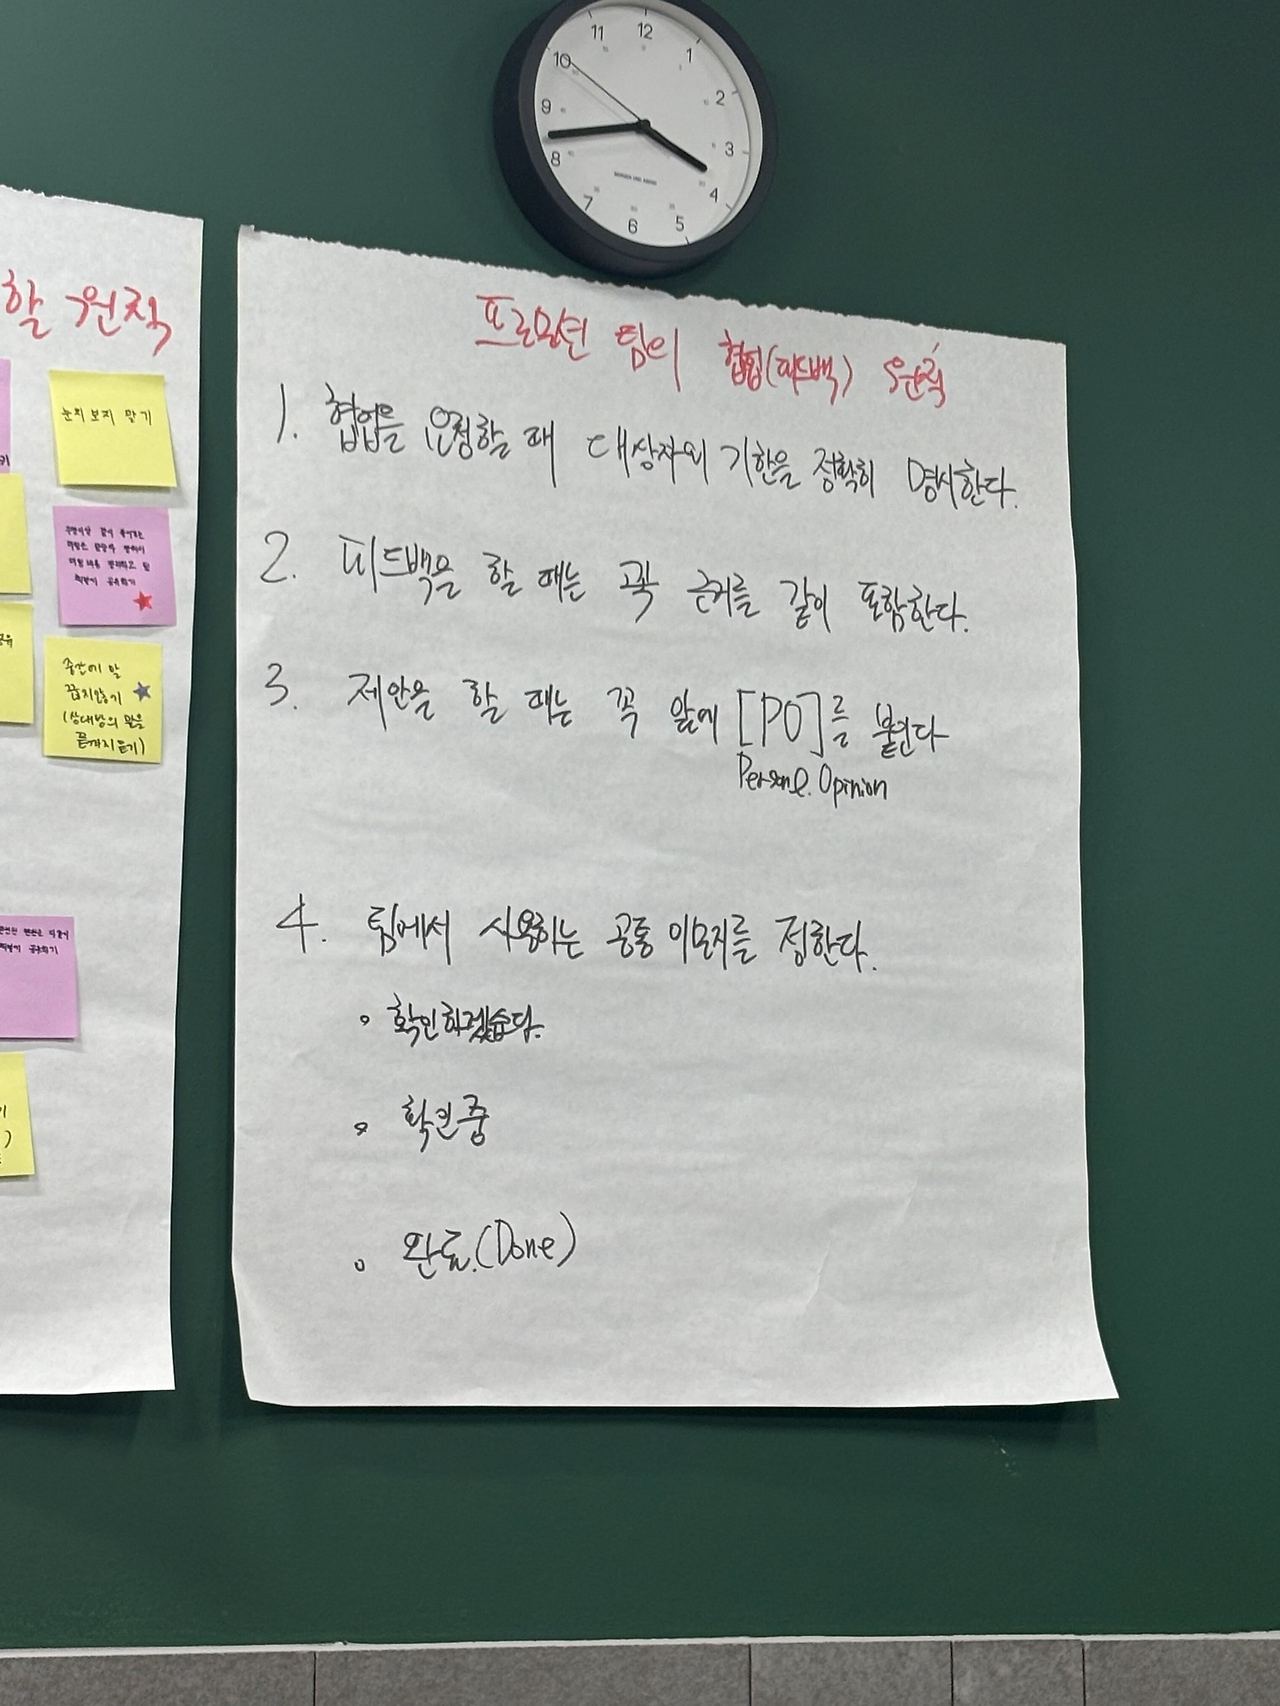 11 12 1
10 2
9 3
8 4
7 6 5
할 원칙
눈치 보지 말기
공유하기
중간에 말
끊지않기
(상대방의 말을
끝까지 듣기)
프로모션 팀의 협업(피드백) 원칙
1. 협업을 요청할 때 대상자와 기한을 정확히 명시한다.
2. 피드백을 할 때는 꼭 근거를 같이 포함한다.
3. 제안을 할 때는 꼭 앞에 [PO]를 붙인다
Personal Opinion
4. 팀에서 사용하는 공통 이모지를 정한다.
• 확인하겠습니다.
• 확인중
• 완료.(Done)